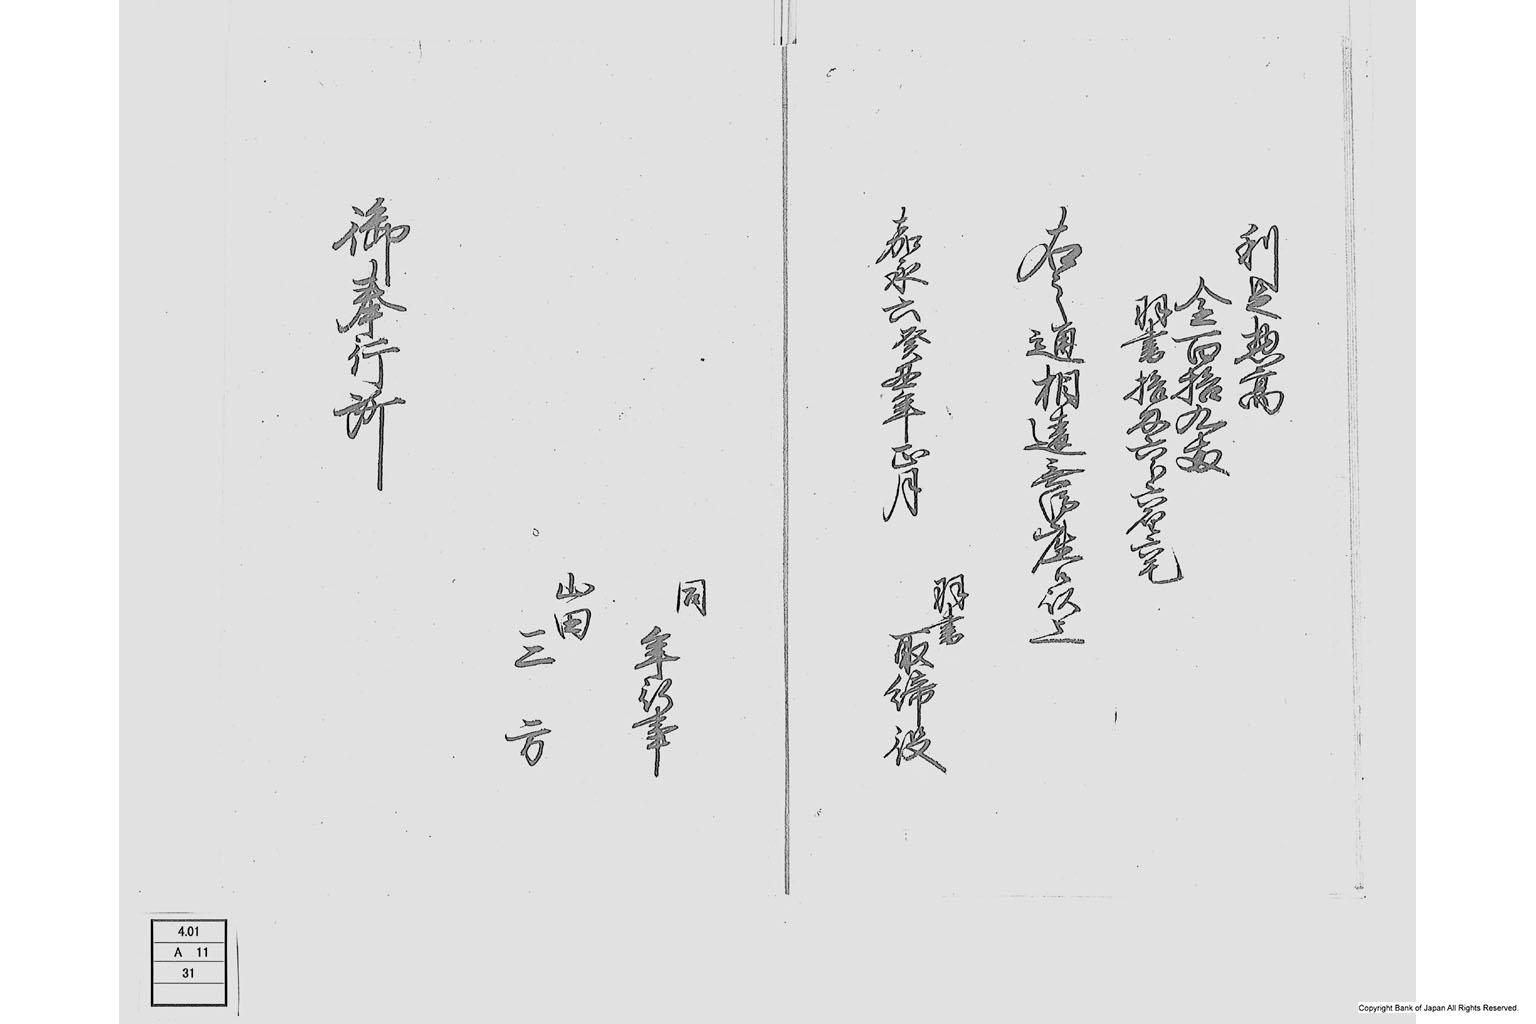 利足惣高
金百四拾九両
羽書拾五匁六分六厘六毛
右之通相違無御座候以上
嘉永六癸丑年正月
羽書
取締役
同
年行事
山田
三方
御奉行所
4.01
A 11
31
Copyright Bank of Japan All Rights Reserved.